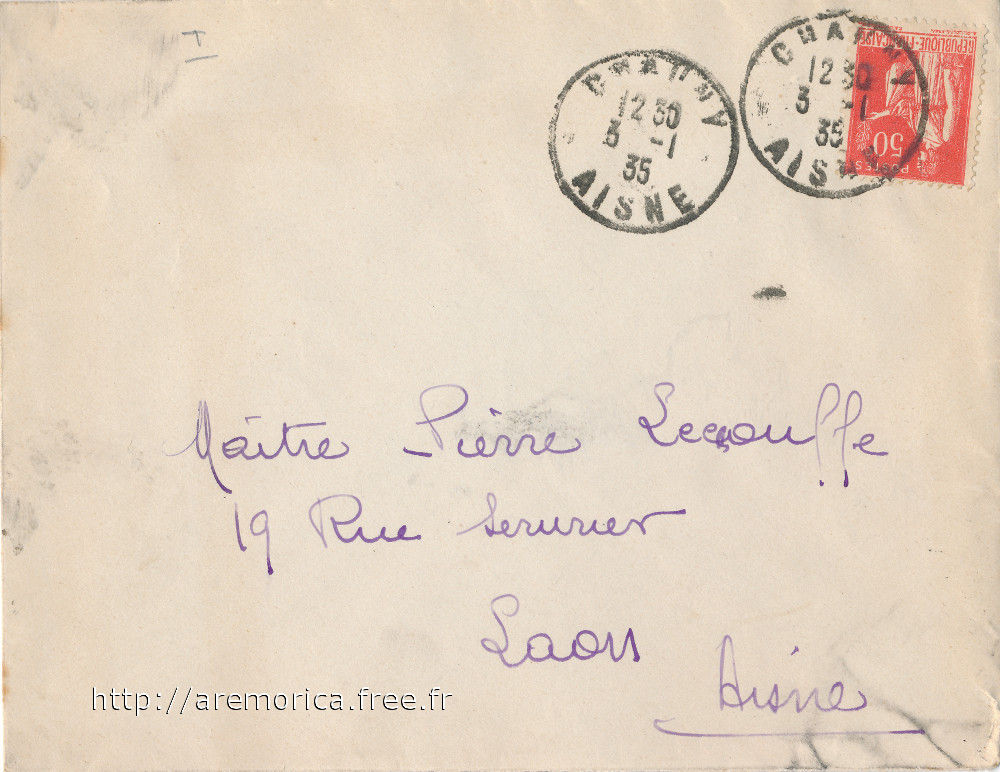 I
CHAUNY
12 30
3 -1
35
AISNE
CHAUNY
12 30
3 -1
35
AISNE
REPUBLIQUE-FRANÇAISE
50
POSTES
Maître Pierre Lecouffe
19 Rue Serurier
Laon
Aisne
http://aremorica.free.fr